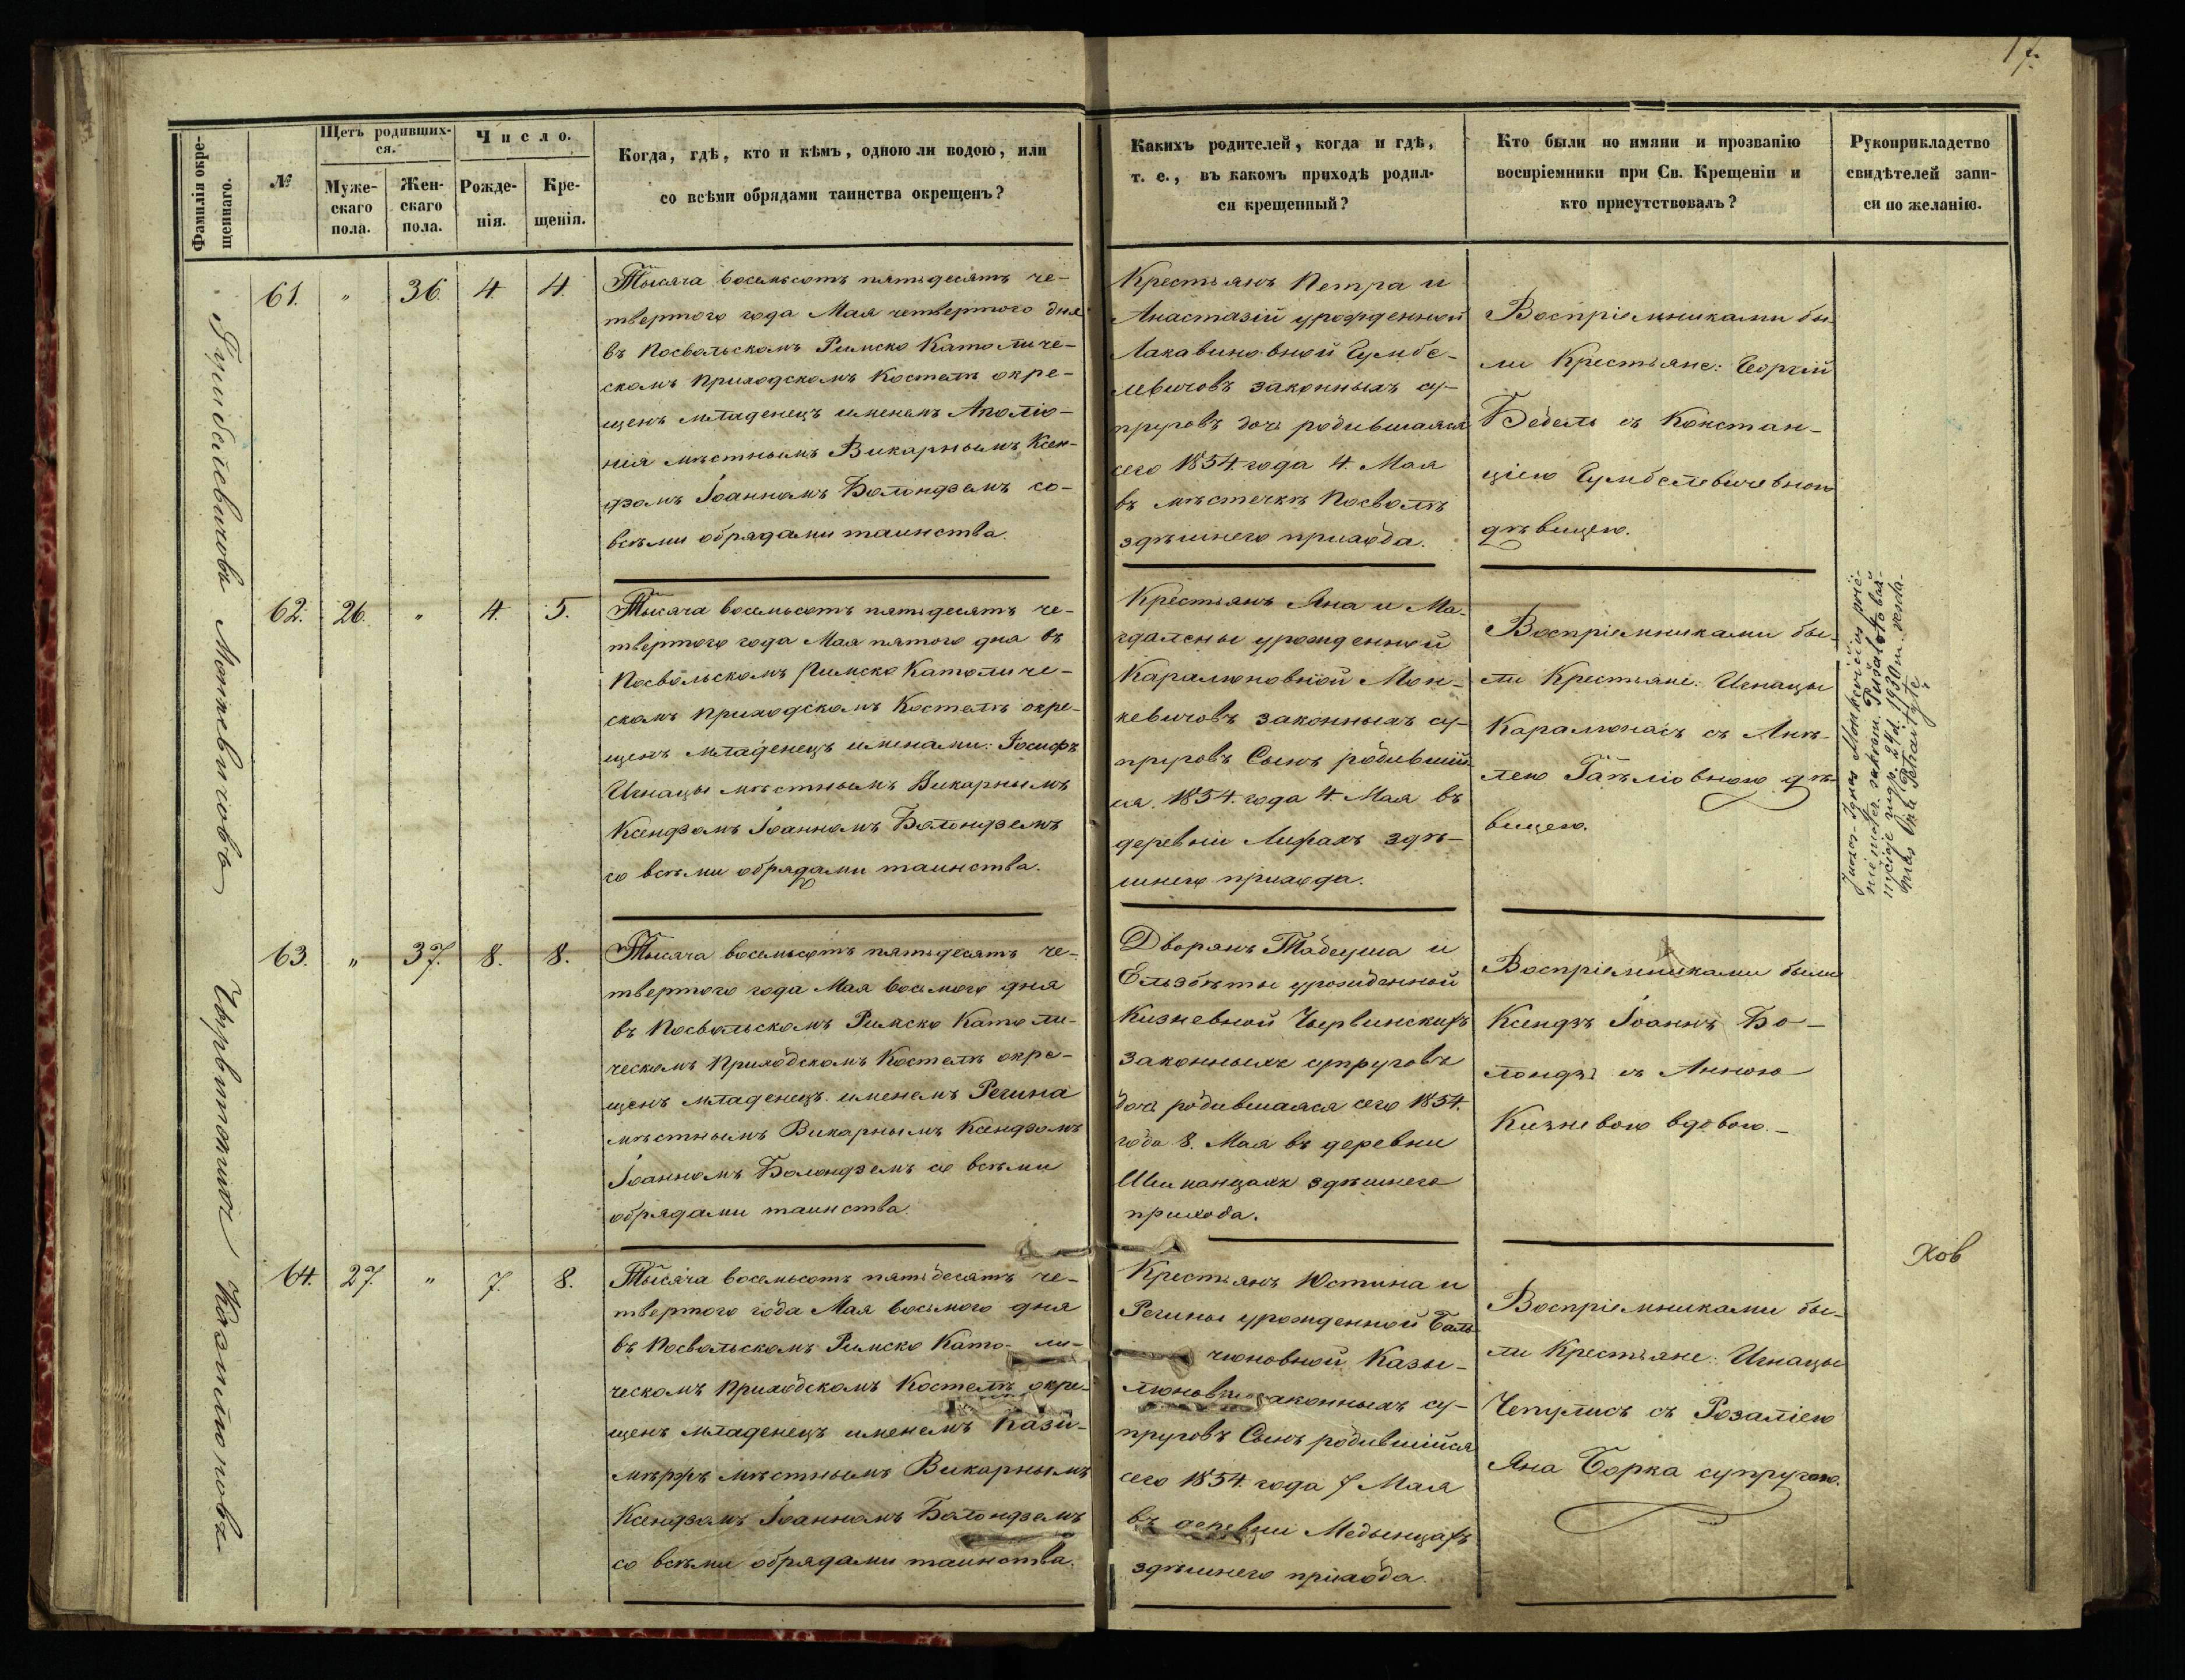 17.
Фамилія окре-
щеннаго.
№
Щетъ родивших-
ся.
Муже-
скаго
пола.
Жен-
скаго
пола.
Число.
Рожде-
нія.
Кре-
щенія.
Когда, гдѣ, кто и кѣмъ, одною ли водою, или
со всѣми обрядами таинства окрещенъ?
Каких­ъ родителей, когда и гдѣ,
т. е., въ какомъ приходѣ родил-
ся крещенный?
Кто были по имяни и прозванію
воспріемники при Св. Крещеніи и
кто присутствовалъ?
Рукоприкладство
свидѣтелей запи-
си по желанію.
61. " 36 4. 4.
Тысяча восемьсотъ пятьдесятъ че-
твертого года Мая четвертого дня
въ Посвольскомъ Римско Католиче-
скомъ приходскомъ Костелѣ окре-
щенъ младенецъ именемъ Аполіо-
нія мѣстнымъ Викарнымъ Ксен-
дзомъ Іоанномъ Болондземъ со-
всѣми обрядами таинства.
Крестьянъ Петра и
Анастазіи урожденной
законныхъ су-
пруговъ дочь родившаяся
сего 1854. года 4. Мая
въ мѣстечкѣ Посволѣ
здѣшнего прихода.
Воспріемниками бы-
ли Крестьяне: Георгій
Бедель съ Констан-
ціею
дѣвицею.
62. 26. " 4. 5.
Монкевичовъ
Тысяча восемьсотъ пятьдесятъ че-
твертого года Мая пятого дня въ
Посвольскомъ Римско Католиче-
скомъ приходскомъ Костелѣ окре-
щенъ младенецъ именами: Іосифъ
Игнацы мѣстнымъ Викарнымъ
Ксендзомъ Іоанномъ Болондземъ
со всѣми обрядами таинства.
Крестьянъ Яна и Ма-
гдалены урожденной
Каралюновной Мон-
кевичовъ законныхъ су-
пруговъ Сынъ родившій-
ся 1854. года 4. Мая въ
деревни здѣ-
шнего прихода.
Воспріемниками бы-
ли Крестьяне: Игнацы
Каралюнасъ съ Анѣ-
лею дѣ-
вицею.
Juozas-Ignas Monkevičius priė-
mė moter. sakram. Pušaloto baž-
nyčioje rugp. 24 d. 1930 m. vesda-
mas Oną Petraitytę
63. " 37. 8. 8.
Тысяча восемьсотъ пятьдесятъ че-
твертого года Мая восьмого дня
въ Посвольскомъ Римско Католи-
ческомъ Приходскомъ Костелѣ окре-
щенъ младенецъ именемъ Регина
мѣстнымъ Викарнымъ Ксендзомъ
Іоанномъ Болондземъ со всѣми
обрядами таинства.
Дворянъ Тадеуша и
Ельзбѣты урожденной
Кизневной
законныхъ супруговъ
дочь родившаяся сего 1854.
года 8. Мая въ деревни
здѣшнего
прихода.
Воспріемниками были
Ксендзъ Іоаннъ Бо-
лондзь съ Анною
Кизневою вдовою.
64. 27. " 7. 8.
Тысяча восемьсотъ пятьдесятъ че-
твертого года Мая восьмого дня
въ Посвольскомъ Римско Като- ли-
ческомъ Приходскомъ Костелѣ окре-
щенъ младенецъ именемъ Кази-
мѣржъ мѣстнымъ Викарнымъ
Ксендзомъ Іоанномъ Болондземъ
со всѣми обрядами таинства.
Крестьянъ Юстина и
Регины урожденной
Казы-
су-
пруговъ Сынъ родившійся
сего 1854. года 7 Мая
въ деревни Медынцахъ
здѣшнего прихода.
Воспріемниками бы-
ли Крестьяне: Игнацы
Чепулисъ съ Розаліею
Яна Борка супругою.